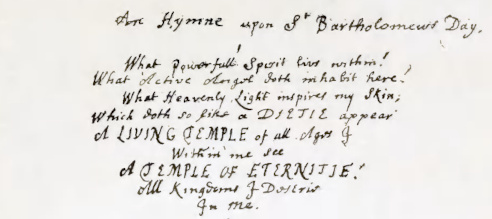 An Hymne upon St Bartholomews Day.
What powerfull Spirit lives within!
What Active Angel doth inhabit here!
What Heavenly Light inspires my Skin;
Which doth so like a DIETIE appear
A LIVING TEMPLE of all Ages I
Within me see
A TEMPLE OF ETERNITIE!
All Kingdoms I Descrie
In me.